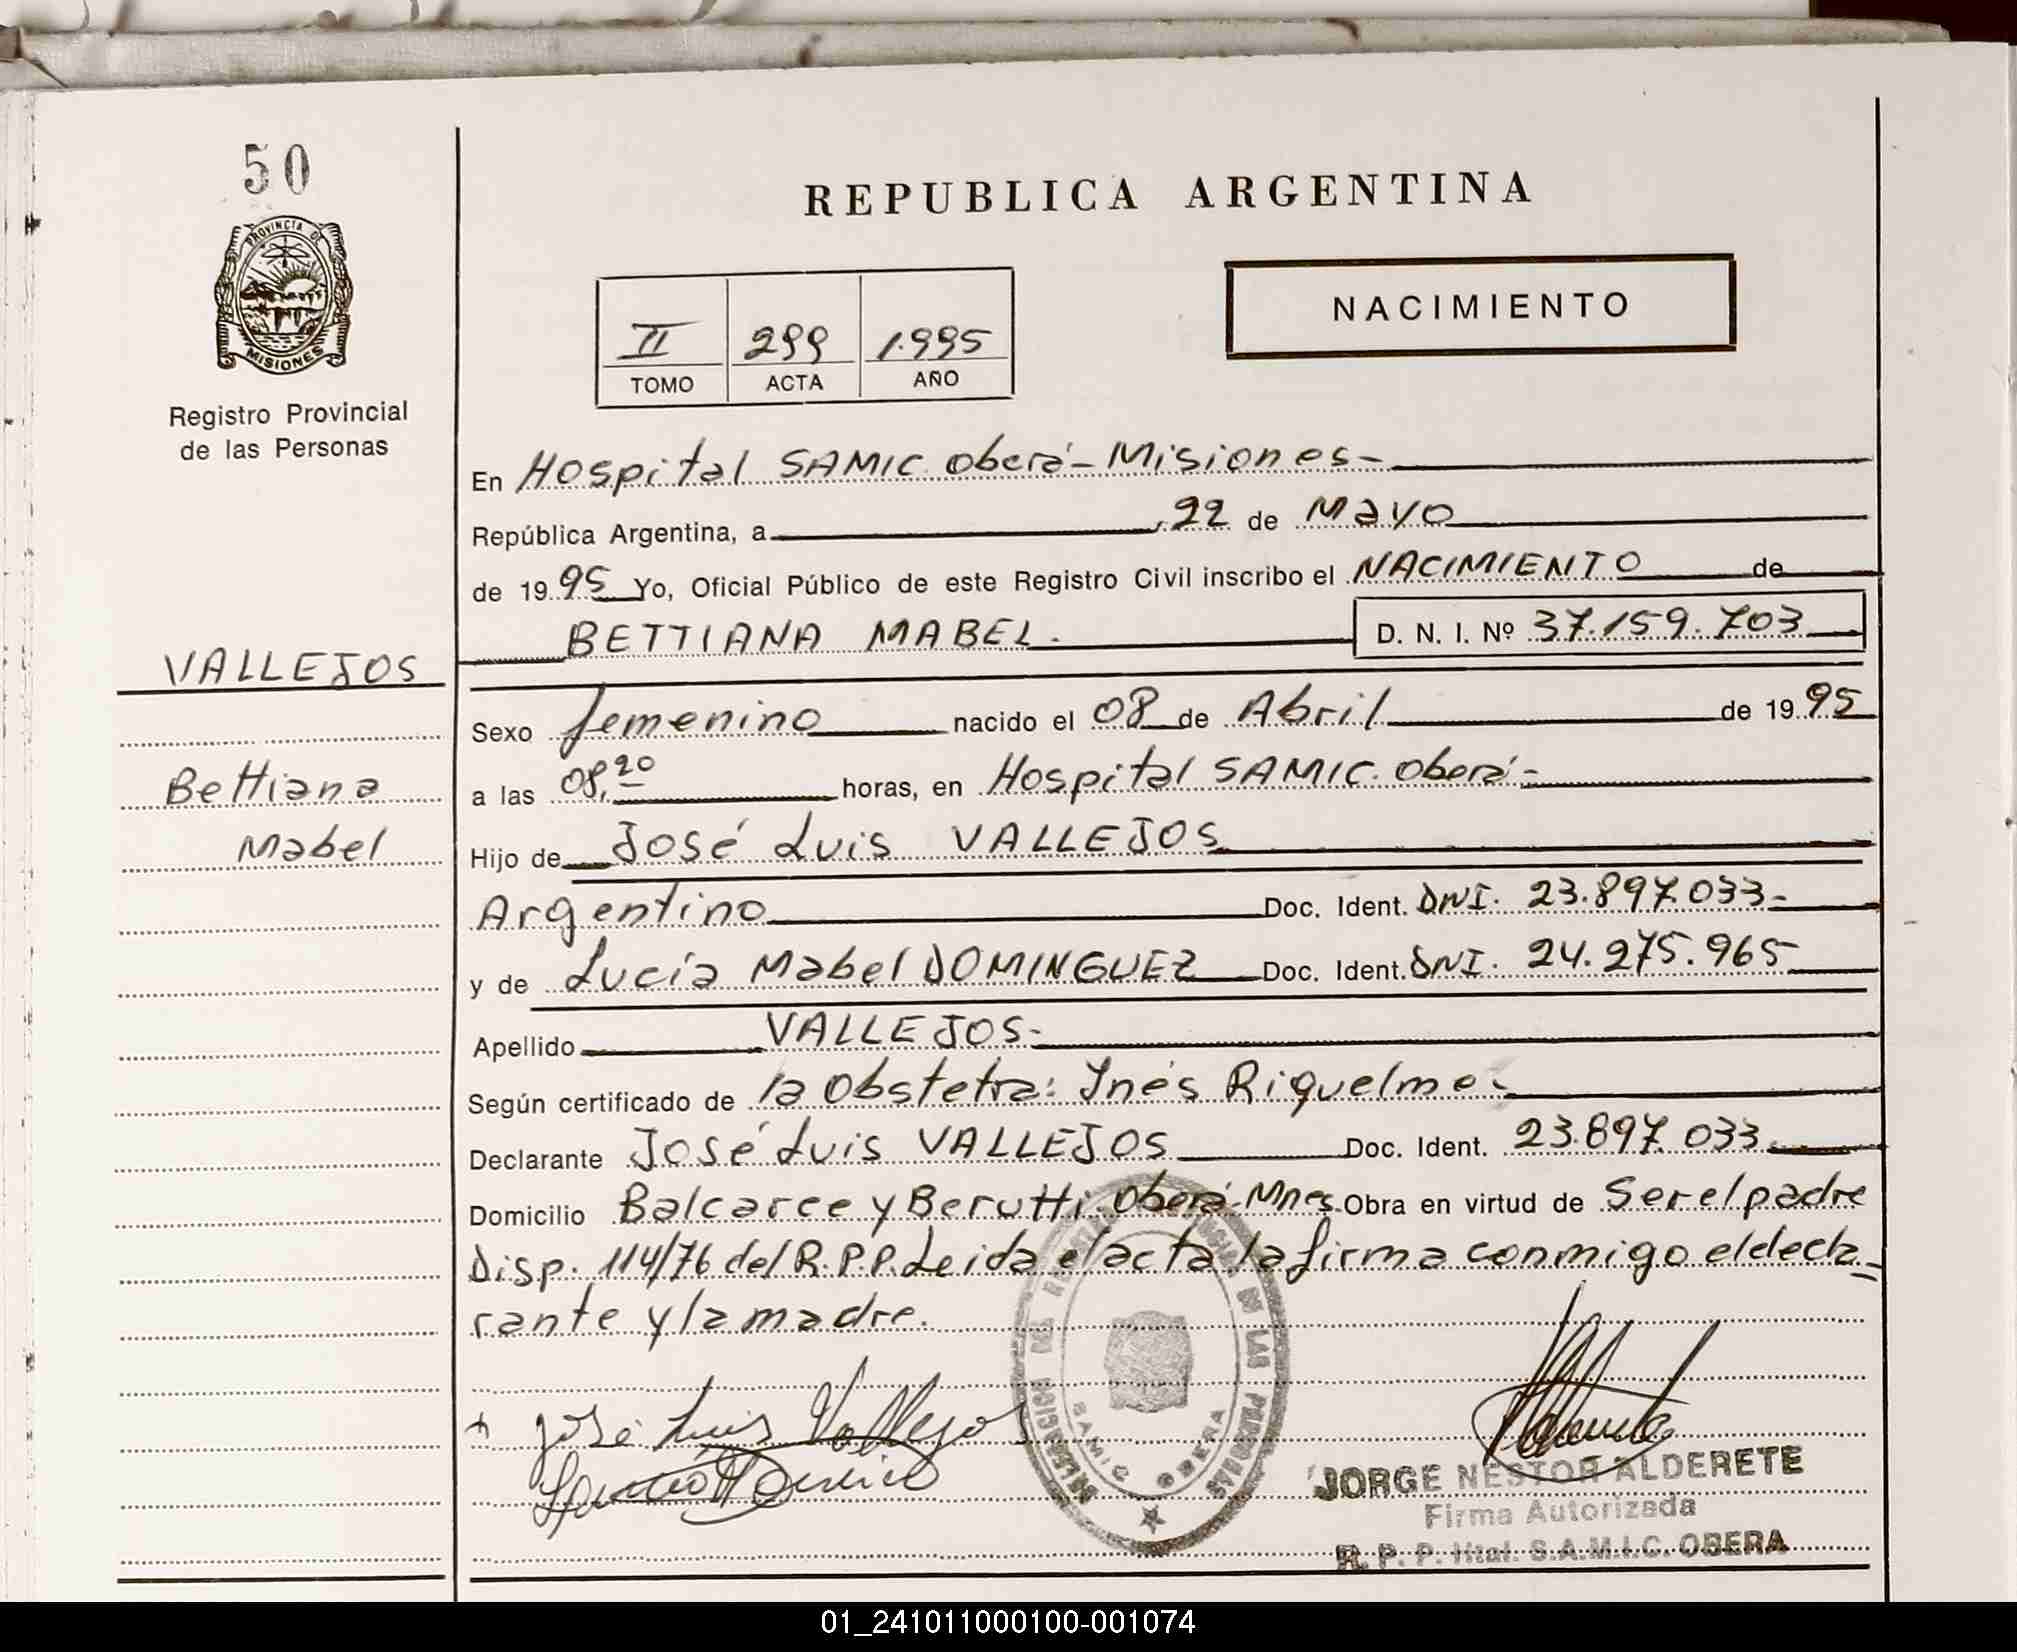 50
PROVINCIA DE
MISIONES
Registro Provincial
de las Personas
REPUBLICA ARGENTINA
NACIMIENTO
II 299 1.995
TOMO ACTA AÑO
En Hospital SAMIC. Oberá - Misiones -
República Argentina, a 22 de Mayo
de 1995 Yo, Oficial Público de este Registro Civil inscribo el NACIMIENTO de
BETTIANA MABEL. D. N. I. Nº 37.159.703
VALLEJOS
Bettiana
Mabel
Sexo femenino nacido el 08 de Abril de 1995
a las 08,20 horas, en Hospital SAMIC. Oberá -
Hijo de José Luis VALLEJOS
Argentino Doc. Ident. DNI. 23.897.033-
y de Lucía Mabel DOMINGUEZ Doc. Ident. DNI. 24.275.965-
Apellido VALLEJOS-
Según certificado de la Obstetra: Inés Riquelme-
Declarante José Luis VALLEJOS Doc. Ident. 23.897.033
Domicilio Balcarce y Berutti. Oberá-Mnes. Obra en virtud de Ser el padre
Disp. 114/76 del R.P.P. Leida el acta la firma conmigo el decla=
rante y la madre.
José Luis Vallejos
SAMIC OBERA
JORGE NESTOR ALDERETE
Firma Autorizada
R. P. P. Htal. S.A.M.I.C. OBERA
01_241011000100-001074